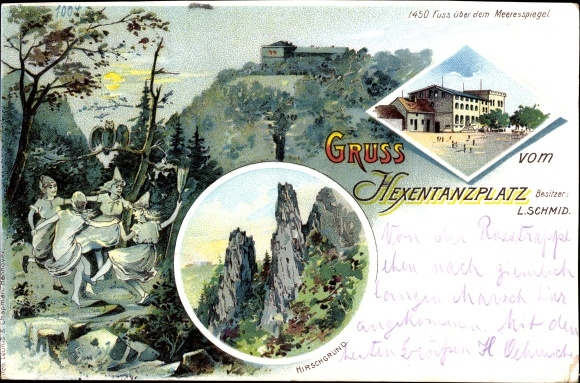 1007
1450 Fuss über dem Meeresspiegel.
GRUSS
VOM
HEXENTANZPLATZ
Besitzer:
L. SCHMID.
Von der Rosstrappe
eben nach ziemlich
langem Marsch hier
angekommen. Mit den
besten Grüssen H.
HIRSCHGRUND